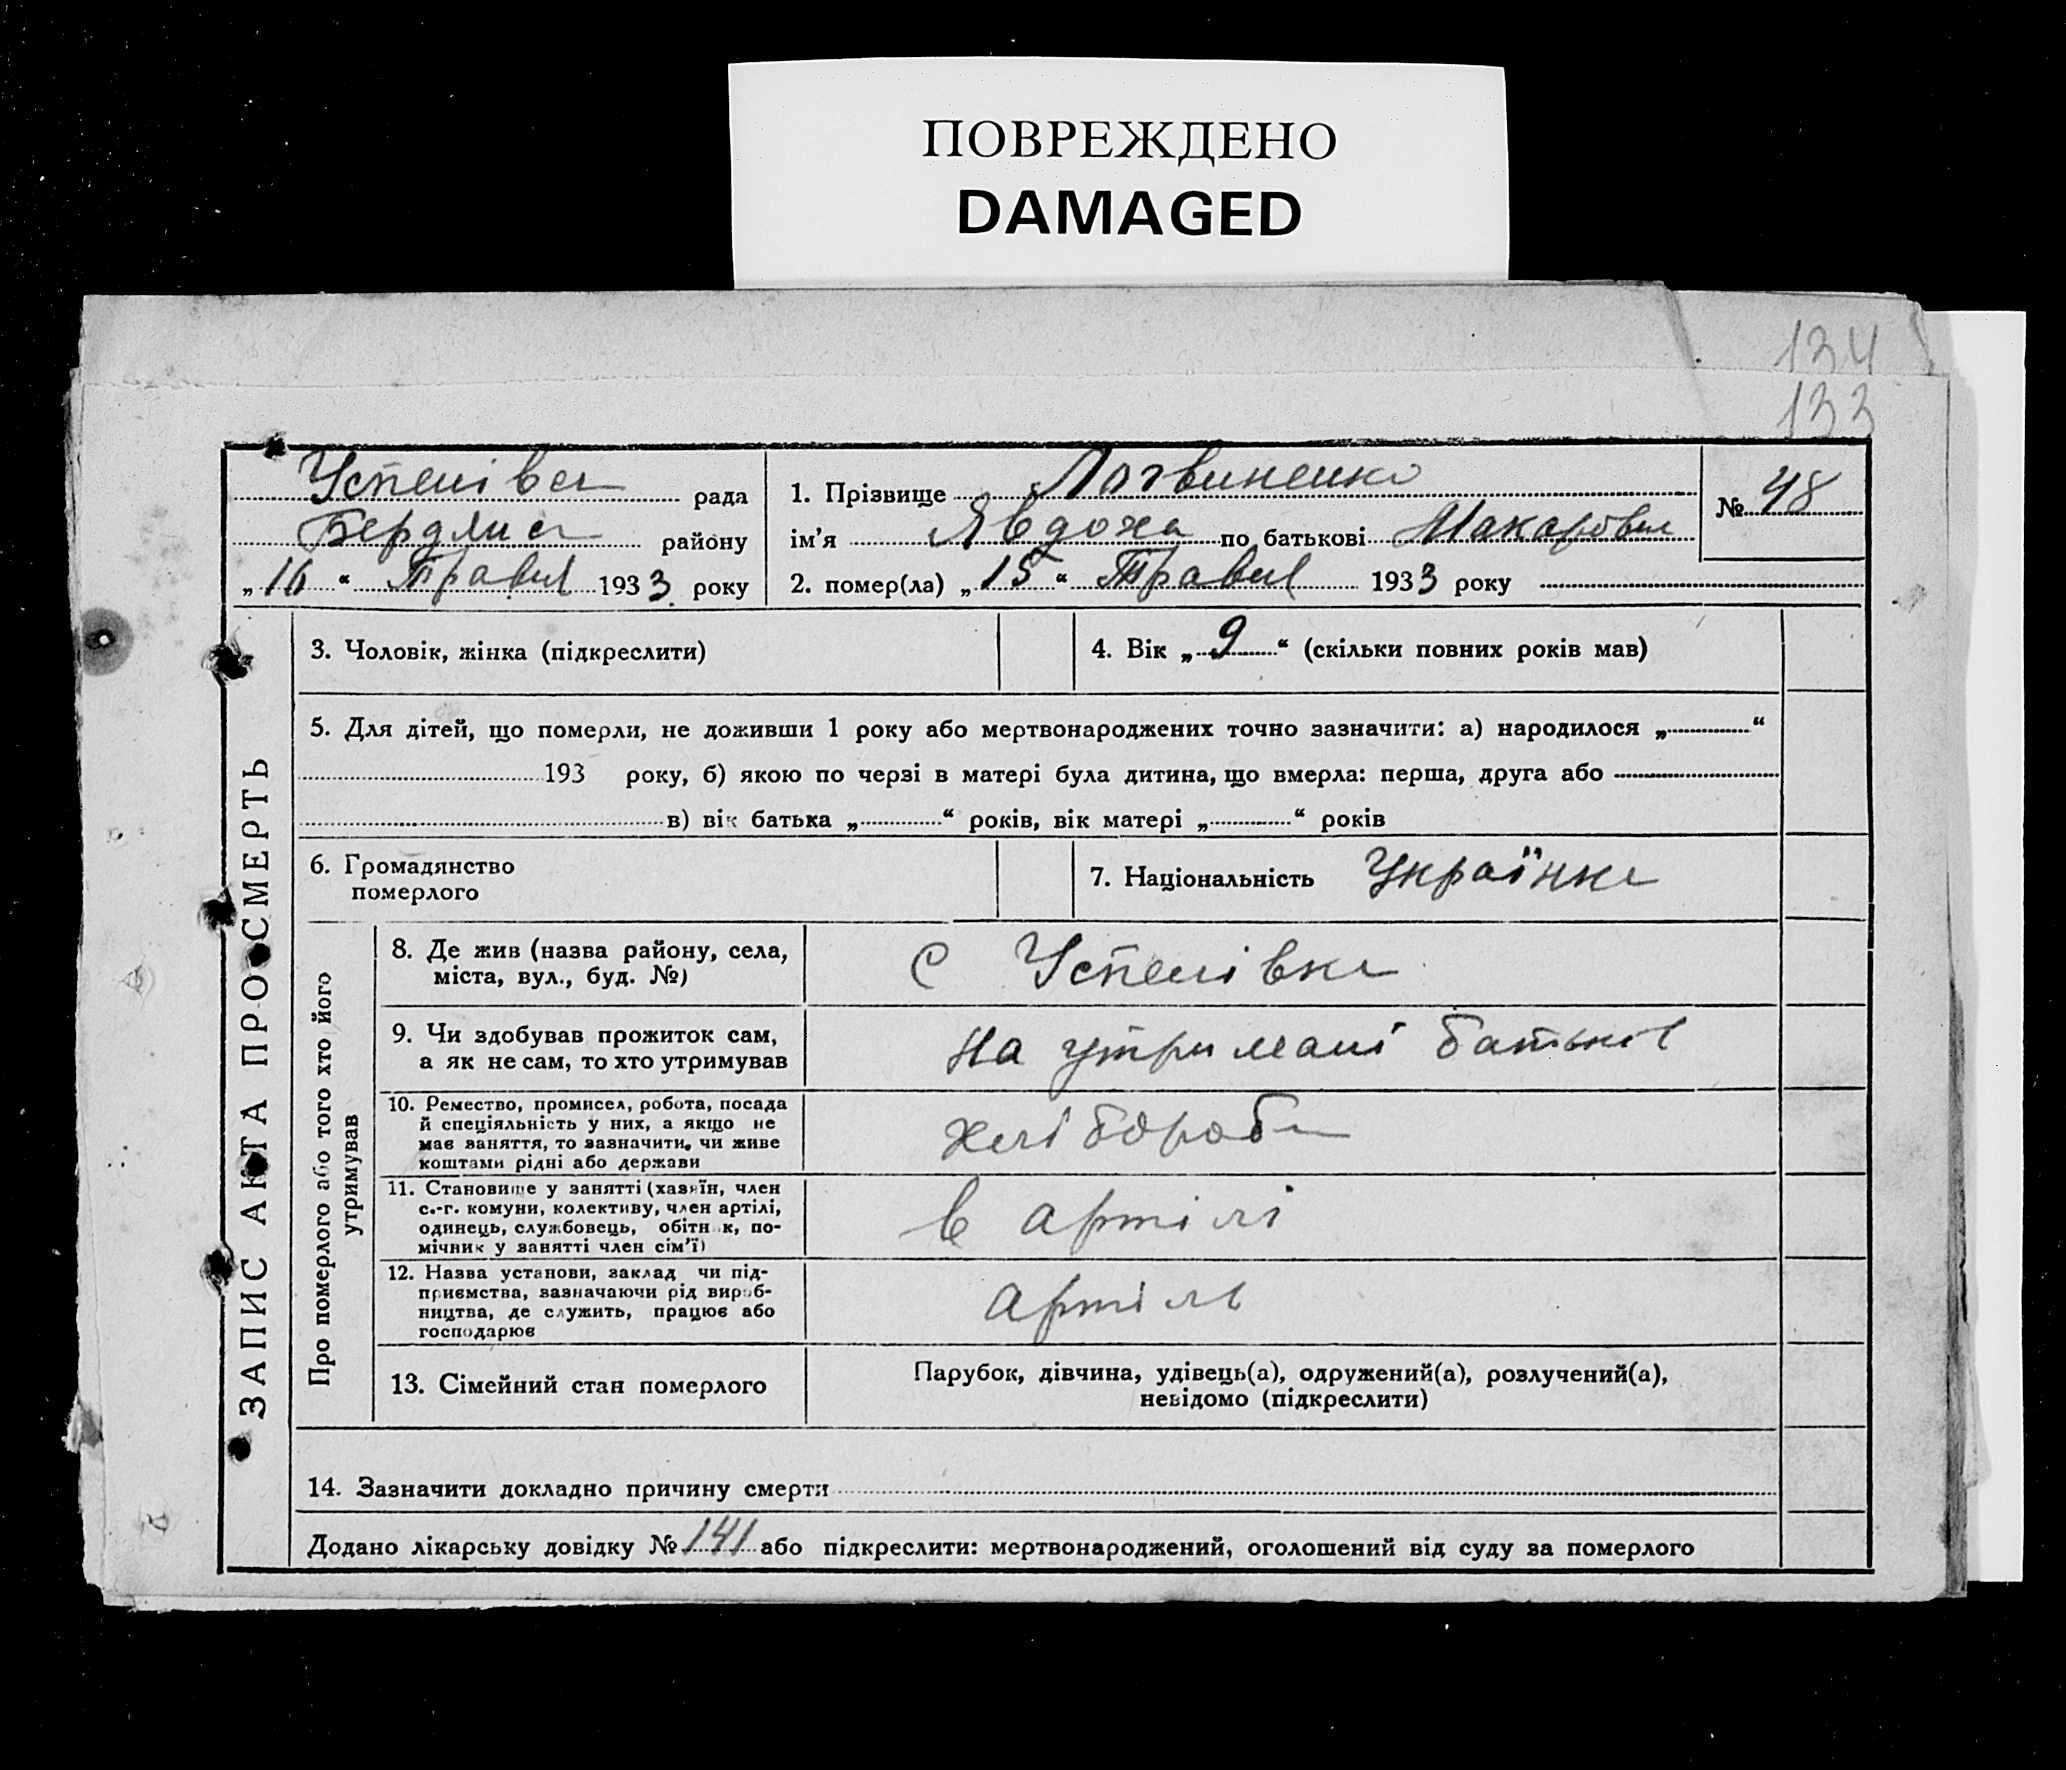 ПОВРЕЖДЕНО
DAMAGED
134
133
Успенівсь рада
Бердянсь району
„16“ Травня 1933 року
1. Прізвище Логвиненко
ім’я Явдоха по батькові Макаровна
2. помер(ла) „15“ Травня 1933 року
№ 48
ЗАПИС АКТА ПРО СМЕРТЬ
3. Чоловік, жінка (підкреслити)
4. Вік „9“ (скільки повних років мав)
5. Для дітей, що померли, не доживши 1 року або мертвонароджених точно зазначити: а) народилося „ “
193 року, б) якою по черзі в матері була дитина, що вмерла: перша, друга або
в) вік батька „ “ років, вік матері „ “ років
6. Громадянство
померлого
7. Національність Українка
Про померлого або того хто його
утримував
8. Де жив (назва району, села,
міста, вул., буд. №)
с Успенівка
9. Чи здобував прожиток сам,
а як не сам, то хто утримував
на утримані батьків
10. Ремество, промисел, робота, посада
й спеціяльність у них, а якщо не
має заняття, то зазначити, чи живе
коштами рідні або держави
хлібороб
11. Становище у занятті (хазяїн, член
с.-г. комуни, колективу, член артілі,
одинець, службовець, обітник, по-
мічник у занятті член сім’ї)
в артілі
12. Назва установи, заклад чи під-
приємства, зазначаючи рід вироб-
ництва, де служить, працює або
господарює
артіль
13. Сімейний стан померлого
Парубок, дівчина, удівець(а), одружений(а), розлучений(а),
невідомо (підкреслити)
14. Зазначити докладно причину смерти
Додано лікарську довідку № 141 або підкреслити: мертвонароджений, оголошений від суду за померлого